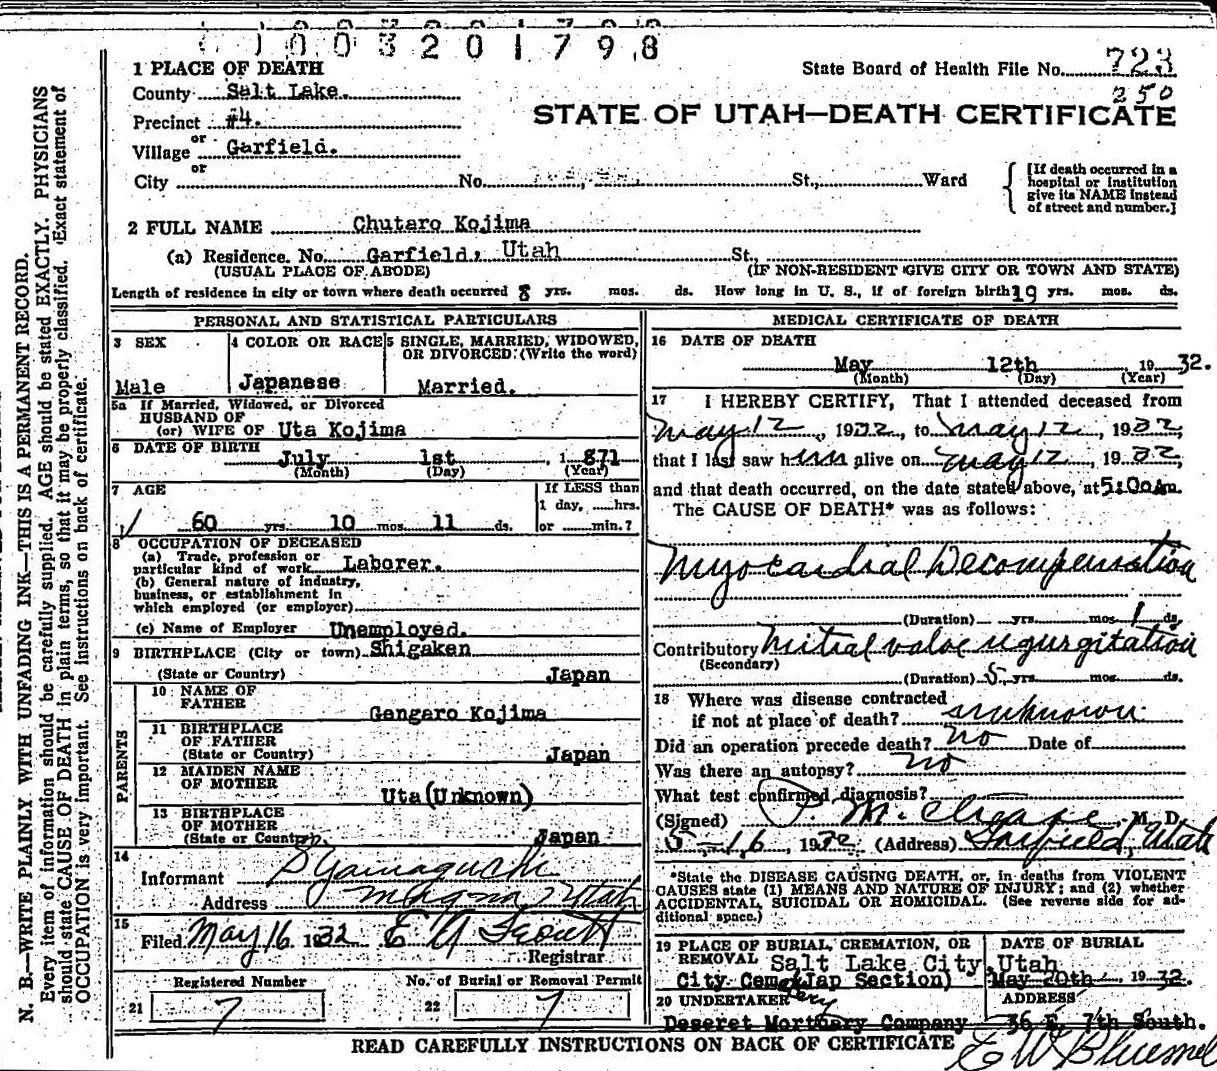 1003201798
1 PLACE OF DEATH
State Board of Health File No. 723
County Salt Lake.
250
STATE OF UTAH—DEATH CERTIFICATE
Precinct #4.
or
Village Garfield.
or
City No. St., Ward
[If death occurred in a hospital or institution give its NAME instead of street and number.]
2 FULL NAME Chutaro Kojima
(a) Residence. No. Garfield, Utah St.,
(USUAL PLACE OF ABODE) (IF NON-RESIDENT GIVE CITY OR TOWN AND STATE)
Length of residence in city or town where death occurred 8 yrs. mos. ds. How long in U. S., if of foreign birth 19 yrs. mos. ds.
PERSONAL AND STATISTICAL PARTICULARS
3 SEX
Male
4 COLOR OR RACE
Japanese
5 SINGLE, MARRIED, WIDOWED, OR DIVORCED: (Write the word)
Married.
5a If Married, Widowed, or Divorced
HUSBAND OF
(or) WIFE OF Uta Kojima
6 DATE OF BIRTH
July 1st , 1871
(Month) (Day) (Year)
7 AGE
60 yrs. 10 mos. 11 ds.
If LESS than
1 day, ......hrs.
or ......min.?
8 OCCUPATION OF DECEASED
(a) Trade, profession or
particular kind of work Laborer.
(b) General nature of industry,
business, or establishment in
which employed (or employer)
(c) Name of Employer Unemployed.
9 BIRTHPLACE (City or town) Shigaken
(State or Country) Japan
PARENTS
10 NAME OF
FATHER
Gengaro Kojima
11 BIRTHPLACE
OF FATHER
(State or Country) Japan
12 MAIDEN NAME
OF MOTHER
Uta (Unknown)
13 BIRTHPLACE
OF MOTHER
(State or Country) Japan
14
Informant S Yamaguchi
Address Magna Utah
15
Filed May 16 1932
Registrar
Registered Number
21 7
No. of Burial or Removal Permit
22 7
MEDICAL CERTIFICATE OF DEATH
16 DATE OF DEATH
May 12th 1932.
(Month) (Day) (Year)
17 I HEREBY CERTIFY, That I attended deceased from
May 12, 1932, to May 12, 1932,
that I last saw him alive on May 12, 1932,
and that death occurred, on the date stated above, at 5:00 Am.
The CAUSE OF DEATH* was as follows:
Myocardial Decompensation
(Duration) yrs. mos. 1 ds.
Contributory Mitral valve regurgitation
(Secondary)
(Duration) 5 yrs. mos. ds.
18 Where was disease contracted
if not at place of death? unknown
Did an operation precede death? no Date of
Was there an autopsy? no
What test confirmed diagnosis?
(Signed) M. D.
5-16, 1932 (Address) Garfield, Utah
*State the DISEASE CAUSING DEATH, or, in deaths from VIOLENT
CAUSES state (1) MEANS AND NATURE OF INJURY; and (2) whether
ACCIDENTAL, SUICIDAL OR HOMICIDAL. (See reverse side for ad-
ditional space.)
19 PLACE OF BURIAL, CREMATION, OR
REMOVAL Salt Lake City, Utah
City Cemetery (Jap Section)
DATE OF BURIAL
May 20th, 1932.
20 UNDERTAKER
Deseret Mortuary Company
ADDRESS
36 E. 7th South.
READ CAREFULLY INSTRUCTIONS ON BACK OF CERTIFICATE
N. B.—WRITE PLAINLY WITH UNFADING INK—THIS IS A PERMANENT RECORD.
Every item of information should be carefully supplied. AGE should be stated EXACTLY. PHYSICIANS
should state CAUSE OF DEATH in plain terms, so that it may be properly classified. Exact statement of
OCCUPATION is very important. See instructions on back of certificate.